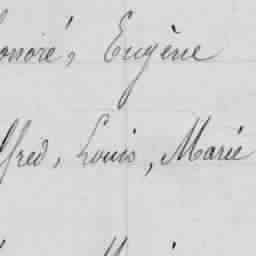 onoré, Eugène
lfred, Louis, Marie